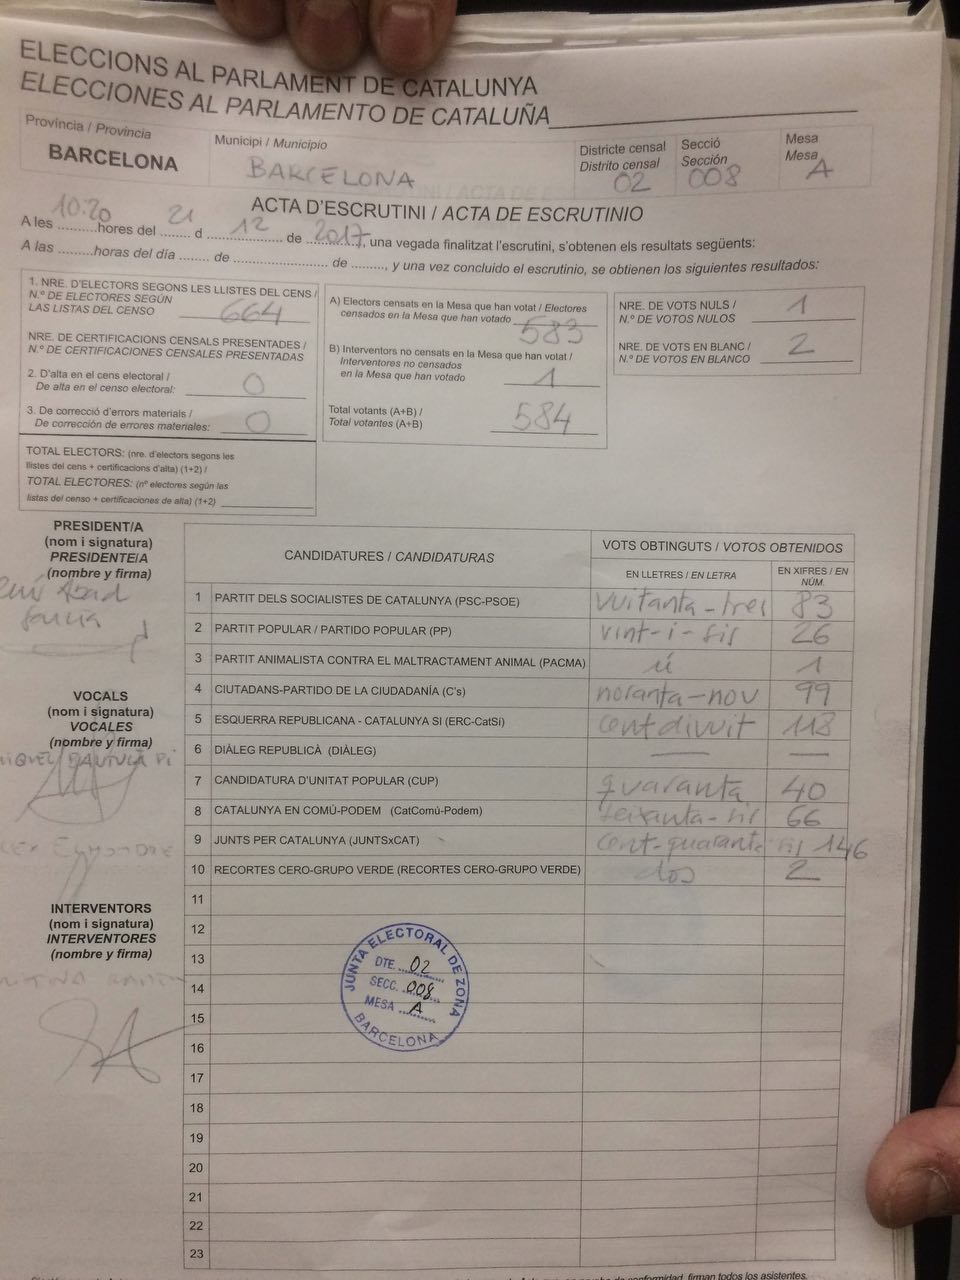 ELECCIONS AL PARLAMENT DE CATALUNYA
ELECCIONES AL PARLAMENTO DE CATALUÑA
Província / Provincia
BARCELONA
Municipi / Municipio
BARCELONA
Districte censal
Distrito censal
02
Secció
Sección
008
Mesa
Mesa
A
ACTA D'ESCRUTINI / ACTA DE ESCRUTINIO
A les 10:20 hores del 21 d 12 de 2017, una vegada finalitzat l'escrutini, s'obtenen els resultats següents:
A las .........horas del día ........ de ........................ de ........, y una vez concluido el escrutinio, se obtienen los siguientes resultados:
1. NRE. D'ELECTORS SEGONS LES LLISTES DEL CENS /
N.º DE ELECTORES SEGÚN
LAS LISTAS DEL CENSO 664
NRE. DE CERTIFICACIONS CENSALS PRESENTADES /
N.º DE CERTIFICACIONES CENSALES PRESENTADAS
2. D'alta en el cens electoral /
De alta en el censo electoral: 0
3. De correcció d'errors materials /
De corrección de errores materiales: 0
TOTAL ELECTORS: (nre. d'electors segons les
llistes del cens + certificacions d'alta) (1+2) /
TOTAL ELECTORES: (nº electores según las
listas del censo + certificaciones de alta) (1+2)
A) Electors censats en la Mesa que han votat / Electores
censados en la Mesa que han votado 583
B) Interventors no censats en la Mesa que han votat /
Interventores no censados
en la Mesa que han votado 1
Total votants (A+B) /
Total votantes (A+B) 584
NRE. DE VOTS NULS /
N.º DE VOTOS NULOS 1
NRE. DE VOTS EN BLANC /
N.º DE VOTOS EN BLANCO 2
PRESIDENT/A
(nom i signatura)
PRESIDENTE/A
(nombre y firma)
VOCALS
(nom i signatura)
VOCALES
(nombre y firma)
INTERVENTORS
(nom i signatura)
INTERVENTORES
(nombre y firma)
CANDIDATURES / CANDIDATURAS
VOTS OBTINGUTS / VOTOS OBTENIDOS
EN LLETRES / EN LETRA
EN XIFRES / EN NÚM.
1 PARTIT DELS SOCIALISTES DE CATALUNYA (PSC-PSOE) vuitanta-tres 83
2 PARTIT POPULAR / PARTIDO POPULAR (PP) vint-i-sis 26
3 PARTIT ANIMALISTA CONTRA EL MALTRACTAMENT ANIMAL (PACMA) ú 1
4 CIUTADANS-PARTIDO DE LA CIUDADANÍA (C's) noranta-nou 99
5 ESQUERRA REPUBLICANA - CATALUNYA SI (ERC-CatSí) cent divuit 118
6 DIÀLEG REPUBLICÀ (DIÀLEG) — —
7 CANDIDATURA D'UNITAT POPULAR (CUP) quaranta 40
8 CATALUNYA EN COMÚ-PODEM (CatComú-Podem) seixanta-sis 66
9 JUNTS PER CATALUNYA (JUNTSxCAT) cent-quaranta sis 146
10 RECORTES CERO-GRUPO VERDE (RECORTES CERO-GRUPO VERDE) dos 2
11
12
13
14
15
16
17
18
19
20
21
22
23
JUNTA ELECTORAL DE ZONA
DTE. 02
SECC. 008
MESA A
BARCELONA
conformidad, firman todos los asistentes.